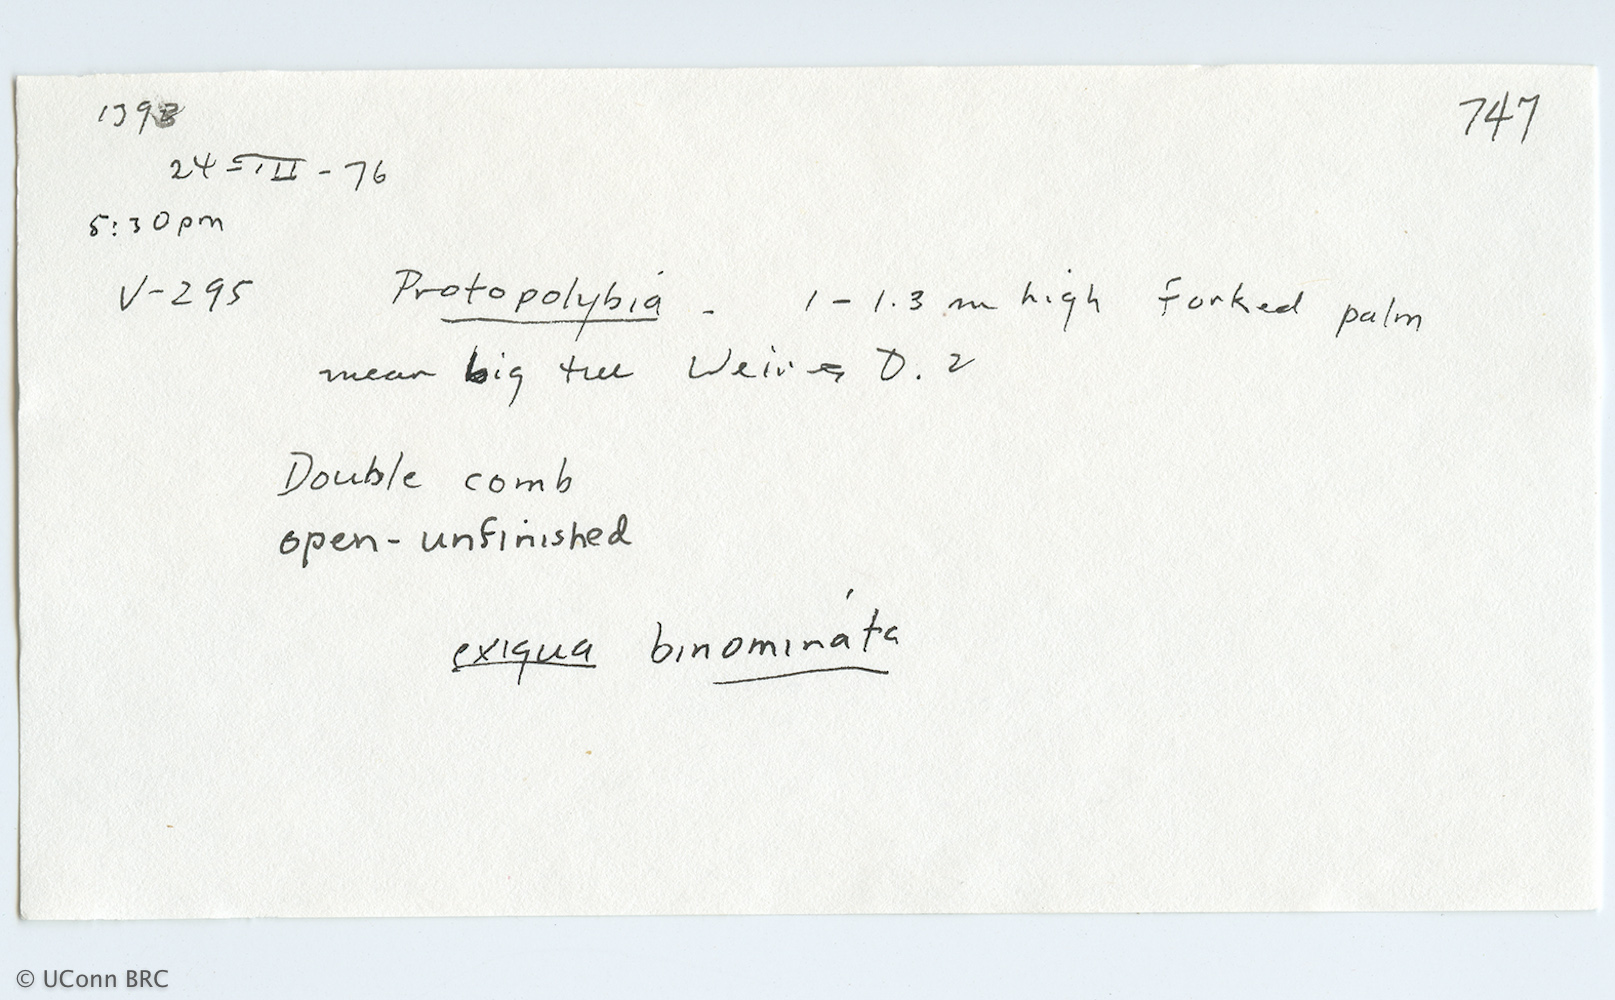 139
747
24-III-76
5:30pm
V-295 Protopolybia - 1-1.3 m high Forked palm
near big tree Weir D. 2
Double comb
open-unfinished
exigua binominata
© UConn BRC